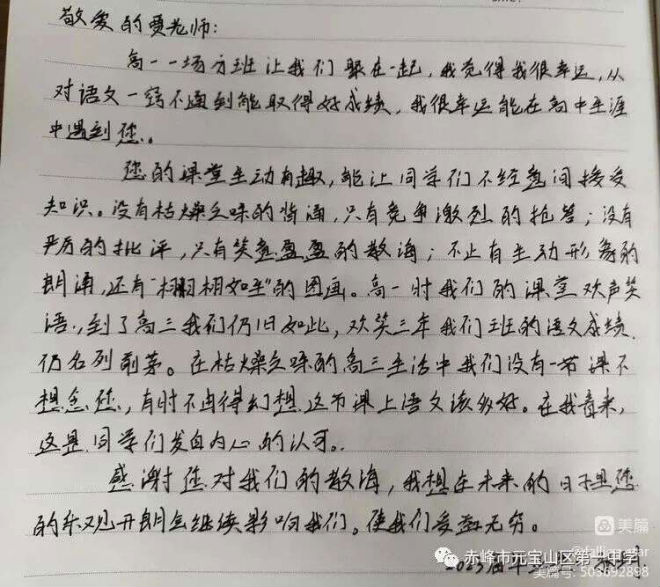 敬爱的贾老师:
高一一场分班让我们聚在一起,我觉得我很幸运,从
对语文一窍不通到能取得好成绩,我很幸运能在高中生涯
中遇到您。
您的课堂生动有趣,能让同学们不经意间接受
知识。没有枯燥乏味的背诵,只有竞争激烈的抢答;没有
严厉的批评,只有笑意盈盈的教诲;不止有生动形象的
朗诵,还有“栩栩如生”的图画。高一时我们的课堂欢声笑
语,到了高三我们仍旧如此,欢笑三年我们班的语文成绩
仍名列前茅。在枯燥乏味的高三生活中我们没有一节课不
想念您,有时不由得幻想这节课上语文该多好。在我看来,
这是同学们发自内心的认可。
感谢您对我们的教诲,我想在未来的日子里您
的乐观开朗会继续影响我们。使我们受益无穷。
美篇
赤峰市元宝山区第一中学
2023届毕业
美篇号: 503692898